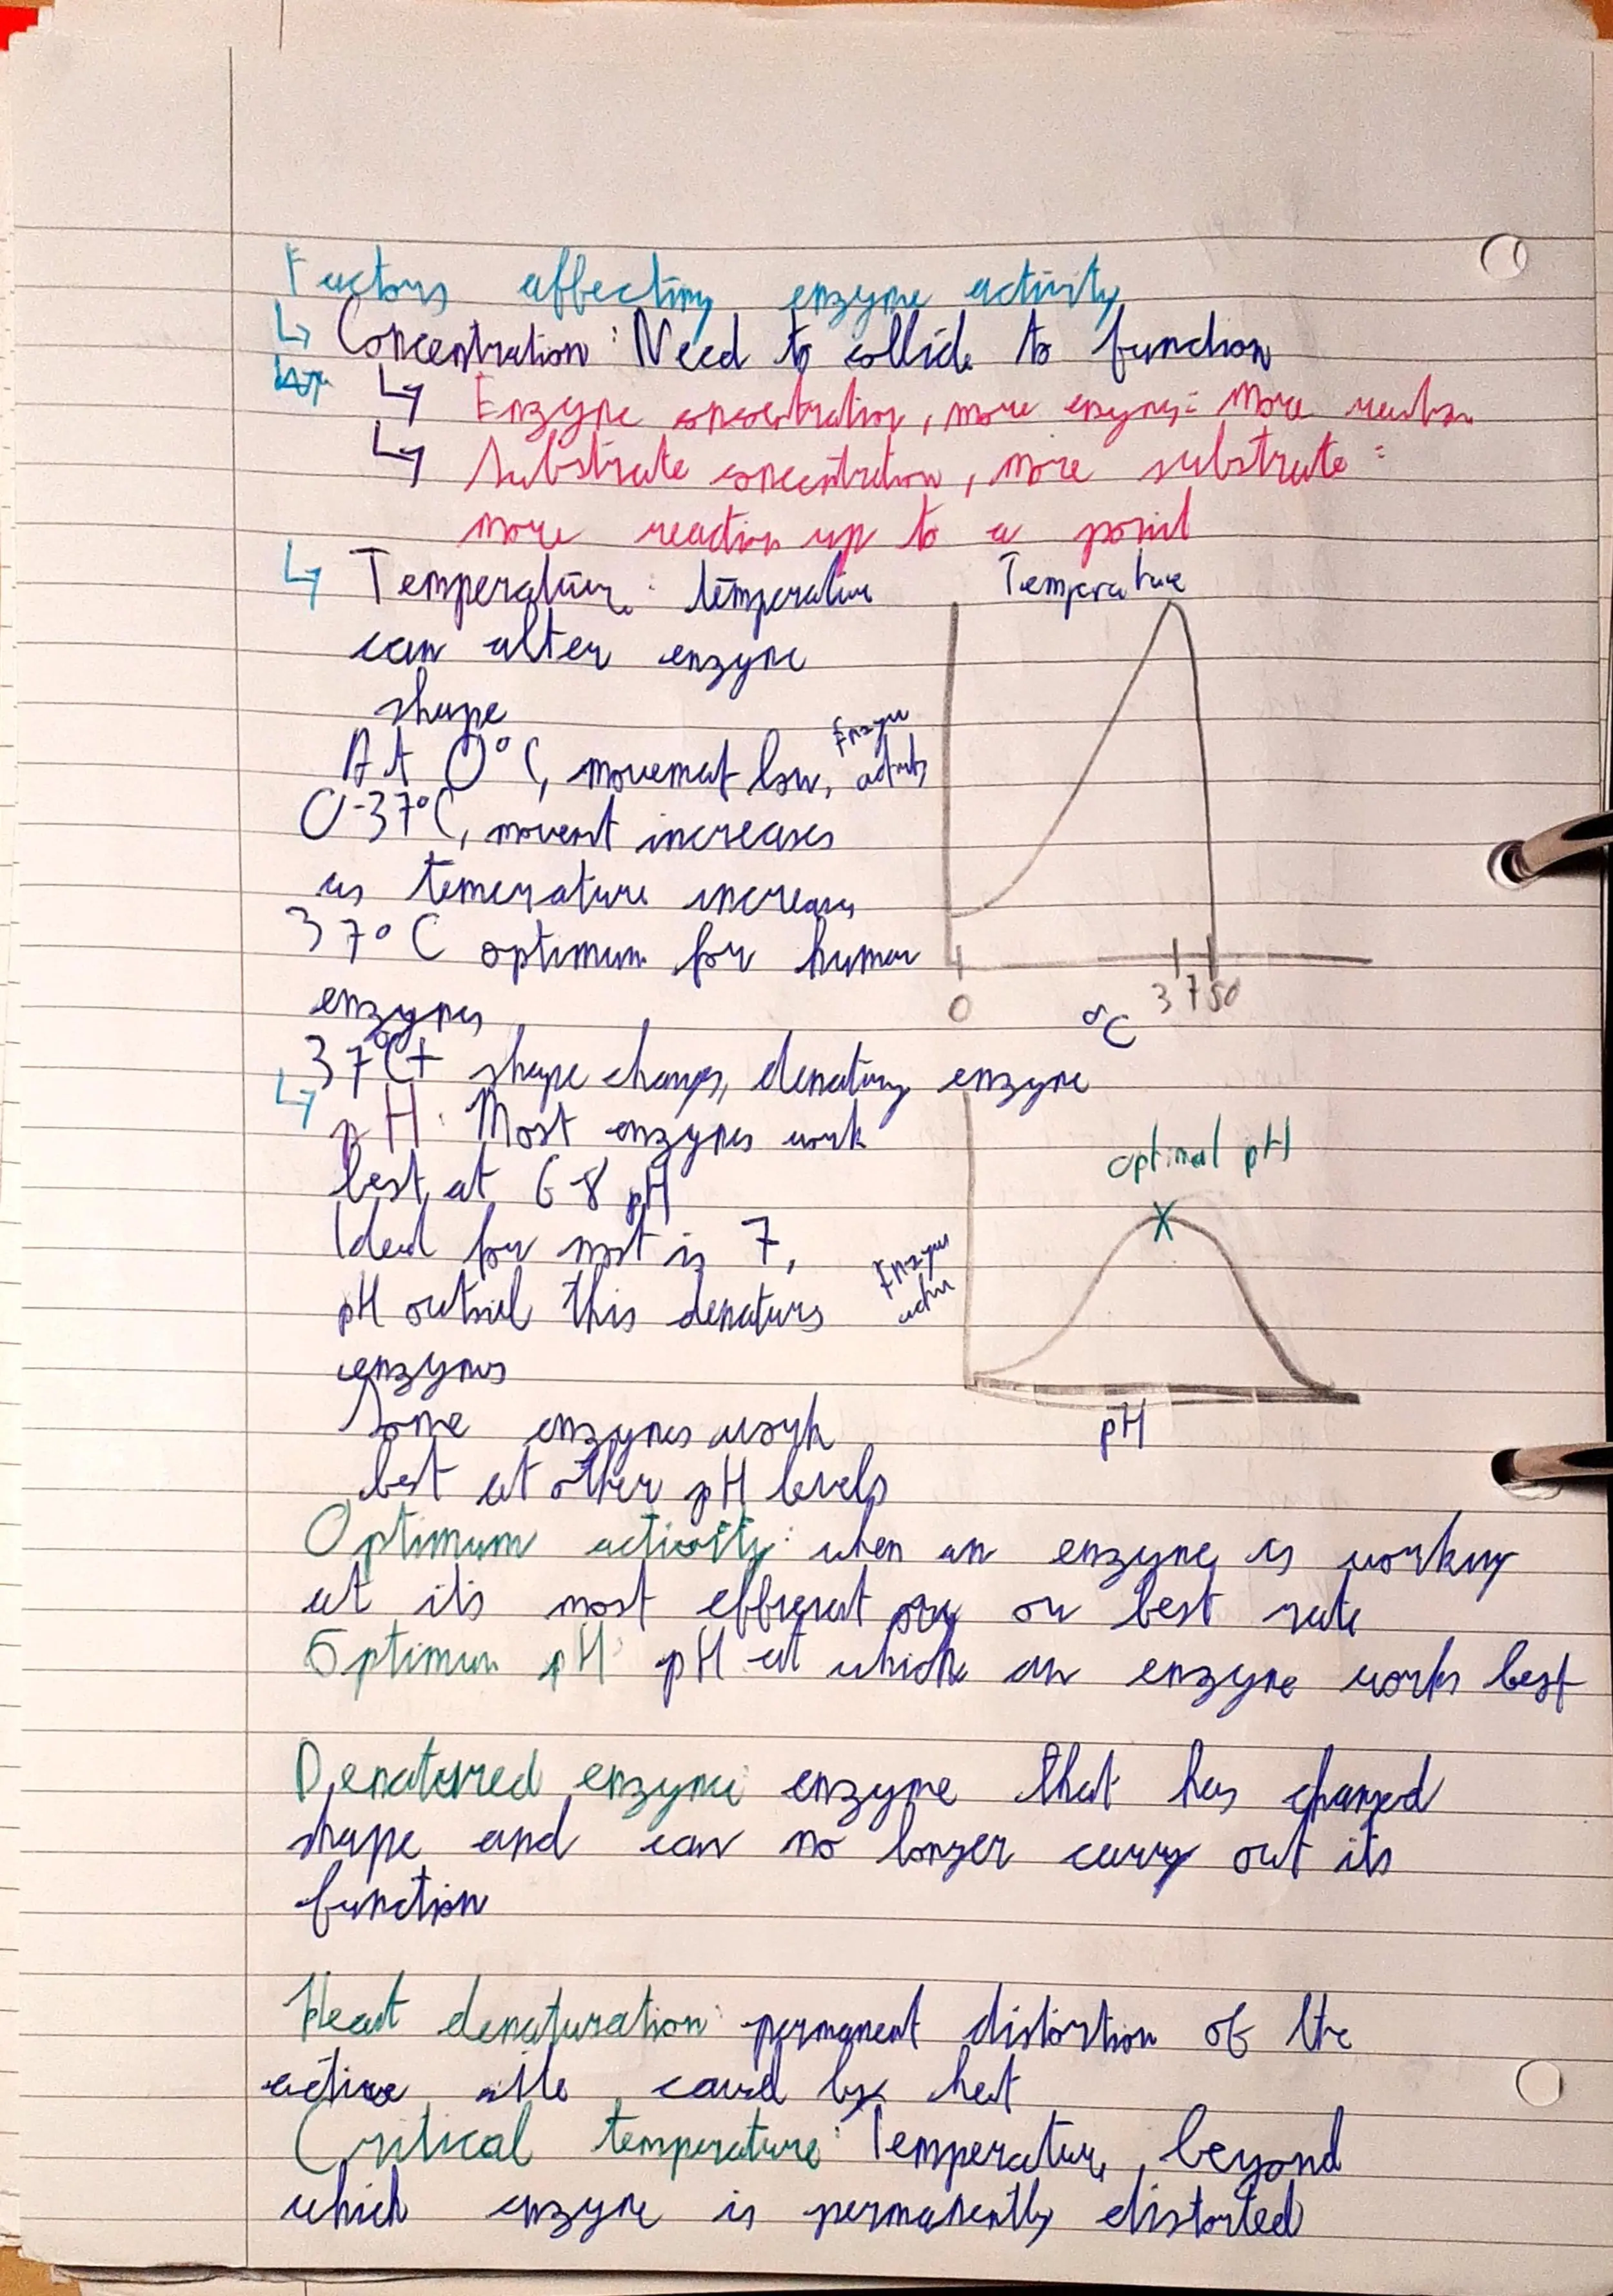 Factors affecting enzyme activity
↳ Concentration: Need to collide to function
↳ Enzyme concentration, more enzyme: more reaction
↳ Substrate concentration, more substrate:
more reaction up to a point
↳ Temperature: temperature
can alter enzyme
shape
At 0°C, movement low,
0-37°C, movemt increases
as temerature increases
37°C optimum for human
enzymes
37°C+ shape changes, denaturing enzyme
Temperature
Enzyme
activity
0 37 50
°C
↳ pH: Most enzymes work
best at 6-8 pH
Ideal for most is 7,
pH outside this denatures
enzymes
Some enzymes work
best at other pH levels
optimal pH
X
Enzyme
pH
Optimum activity: when an enzyme is working
at its most efficient or best rate
Optimum pH: pH at which an enzyme works best
Denatured enzyme: enzyme that has changed
shape and can no longer carry out its
function
Heat denaturation: permanent distortion of the
active site caused by heat
Critical temperature: Temperature beyond
which enzyme is permanently distorted